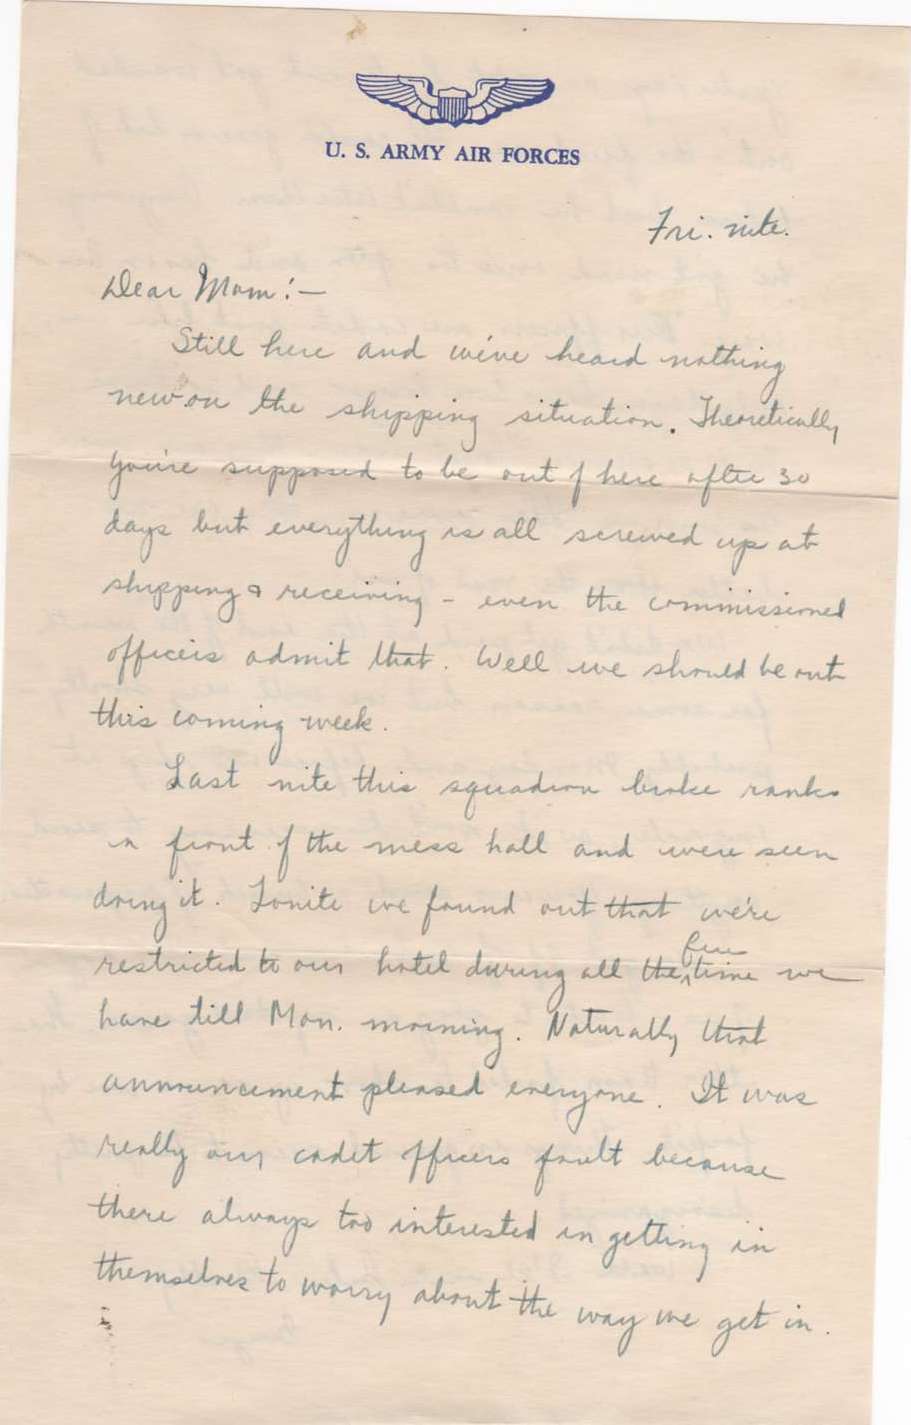 U. S. ARMY AIR FORCES
Fri. nite.
Dear Mom: —
Still here and we've heard nothing
new on the shipping situation. Theoretically
you're supposed to be out of here after 30
days but everything is all screwed up at
shipping & receiving - even the commissioned
officers admit that. Well we should be out
this coming week.
Last nite this squadron broke ranks
in front of the mess hall and were seen
doing it. Tonite we found out that we're
restricted to our hotel during all the free time we
have till Mon. morning. Naturally that
announcement pleased everyone. It was
really our cadet officers fault because
there always too interested in getting in
themselves to worry about the way we get in.